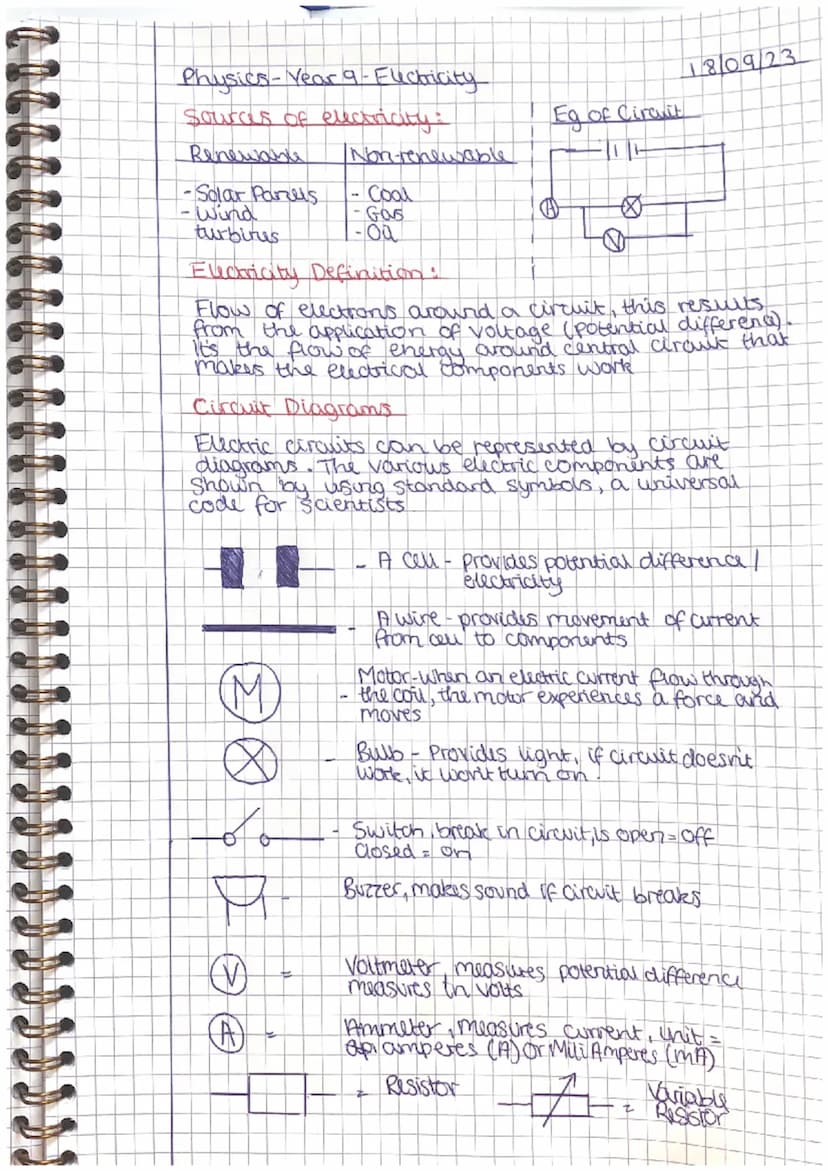 Physics - Year 9 - Electricity
18/09/23
Sources of electricity:
Renewable
Non-renewable
- Solar Panels
- Wind
turbines
- Coal
- Gas
- Oil
Eg of Circuit
A
V
Electricity Definition:
Flow of electrons around a circuit, this results
from the application of voltage (potential difference).
It's the flow of energy around central circuit that
makes the electrical components work
Circuit Diagrams
Electric circuits can be represented by circuit
diagrams. The various electric components are
shown by using standard symbols, a universal
code for scientists
- A cell - provides potential difference /
electricity
- A wire - provides movement of current
from cell to components
M
Motor - when an electric current flow through
- the coil, the motor experiences a force and
moves
- Bulb - Provides light, if circuit doesn't
work, it won't turn on.
- Switch, break in circuit, is open = off
closed = on
- Buzzer, makes sound if circuit breaks
V = Voltmeter, measures potential difference
measures in volts
A = Ammeter, measures current, unit =
amperes (A) or MiliAmperes (mA)
= Resistor
= Variable
Resistor